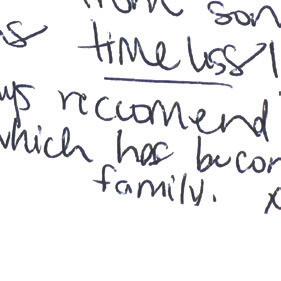 from son
s timeless
ys reccomend
which has becom
family. x